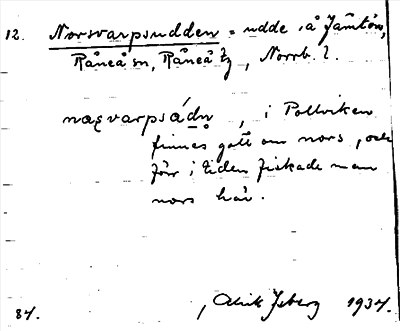 12. Norsvarpsudden = udde i å Jämtön,
Råneå sn, Råneå tg, Norrb. l.
næʂvarpsádn̥, i Pollviken
finnes gott om nors, och
förr i tiden fiskade man
nors här.
84. Alrik Isberg 1934.